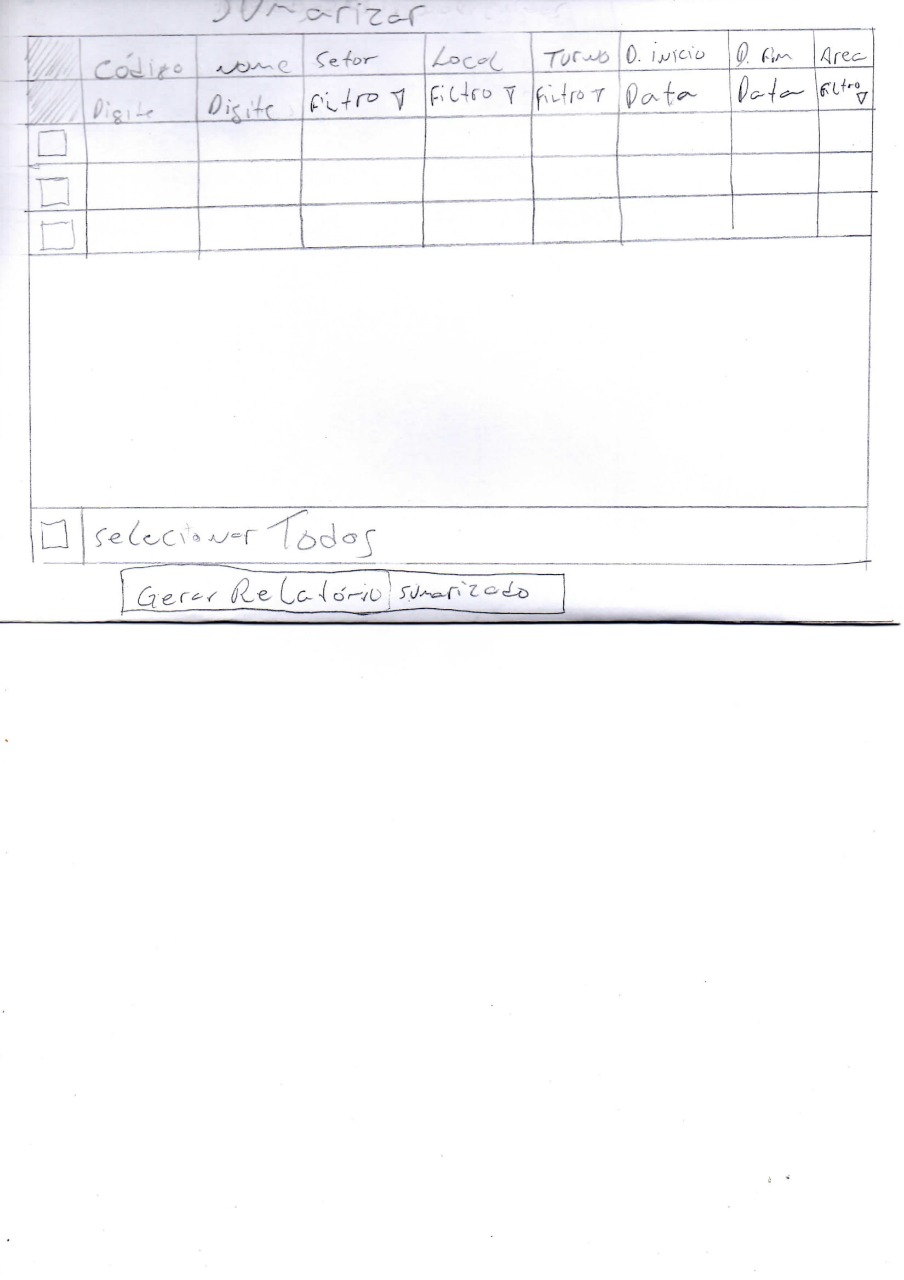 Sumarizar
Código Nome Setor Local Turno D. inicio D. fim Area
Digite Digite Filtro Filtro Filtro Data Data Filtro
Selecionar Todos
Gerar Relatório Sumarizado